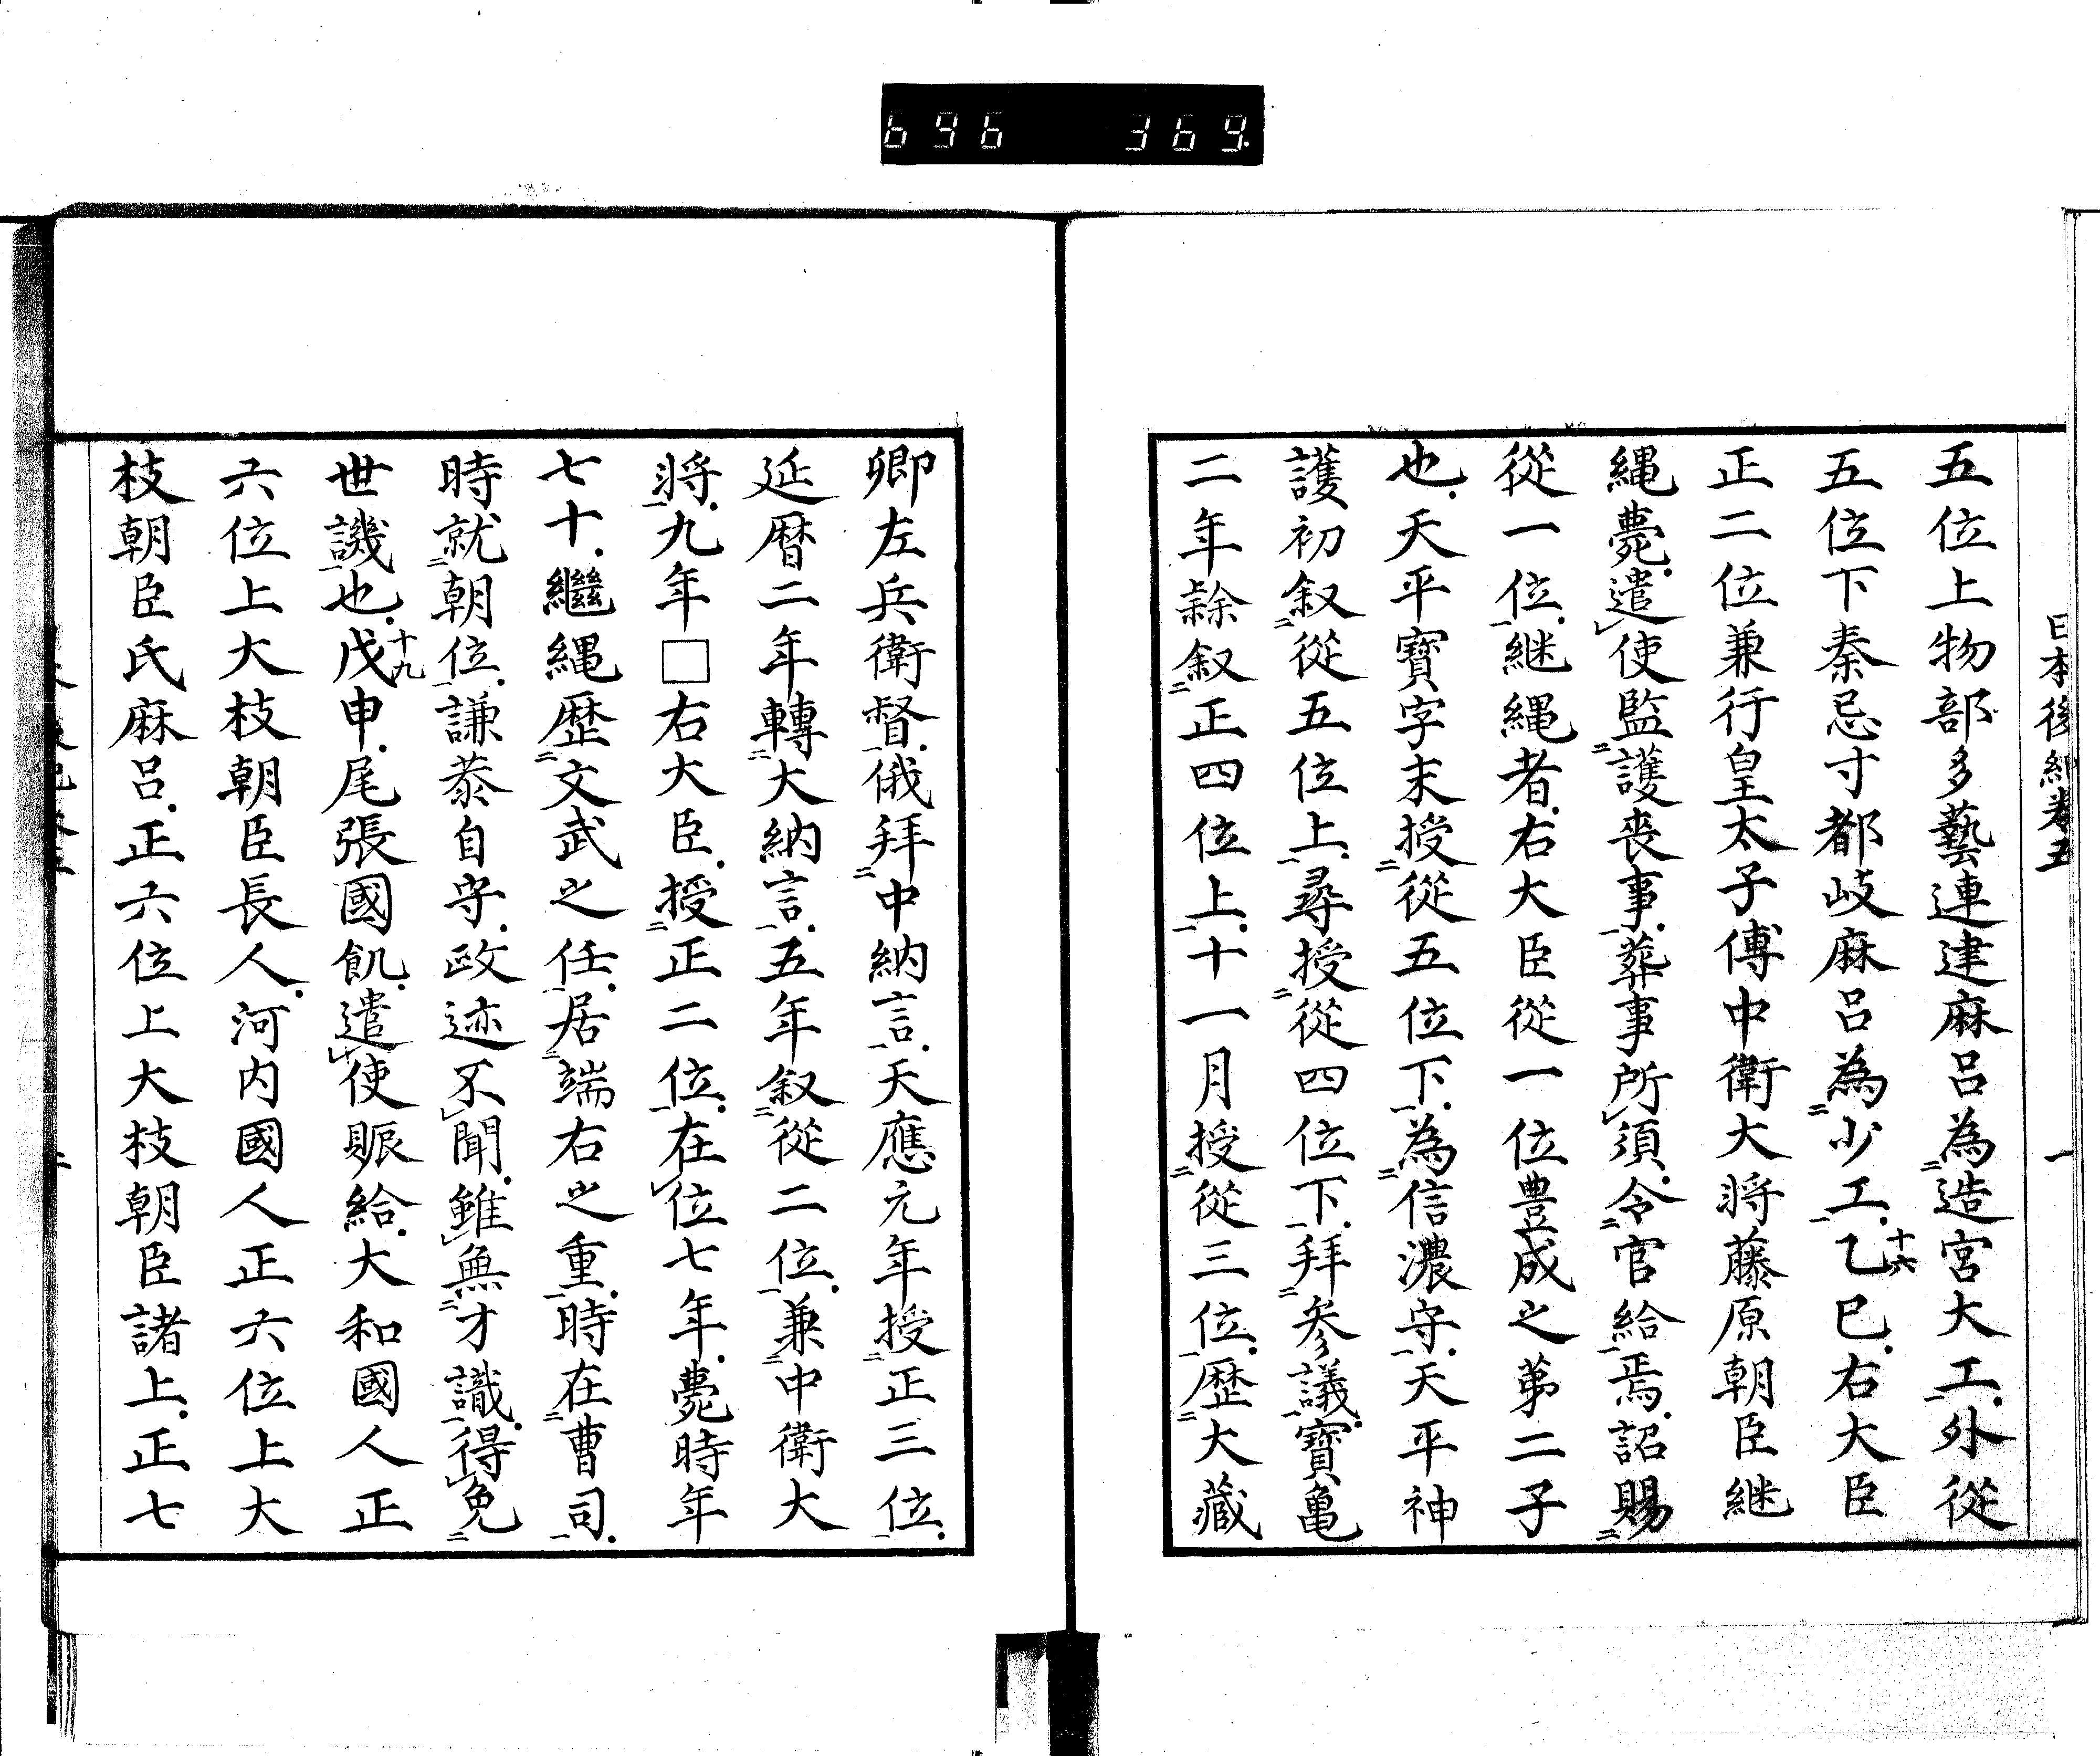 696 369
日本後紀卷五 一
五位上物部多藝連建麻呂為造宮大工外從
五位下秦忌寸都岐麻呂為少工乙十六巳右大臣
正二位兼行皇太子傅中衛大将藤原朝臣継
縄薨遣使監護喪事葬事所須令官給焉詔賜
從一位継縄者右大臣從一位豊成之第二子
也天平寳字末授從五位下為信濃守天平神
護初叙從五位上尋授從四位下拜參議寳亀
二年餘叙正四位上十一月授從三位歴大藏
卿左兵衛督俄拜中納言天應元年授正三位
延暦二年轉大納言五年叙從二位兼中衛大
将九年□右大臣授正二位在位七年薨時年
七十繼縄歴文武之任居端右之重時在曹司
時就朝位謙恭自守政迹不聞雖無才識得免
世譏也戊十九申尾張國飢遣使賑給大和國人正
六位上大枝朝臣長人河内國人正六位上大
枝朝臣氏麻呂正六位上大枝朝臣諸上正七